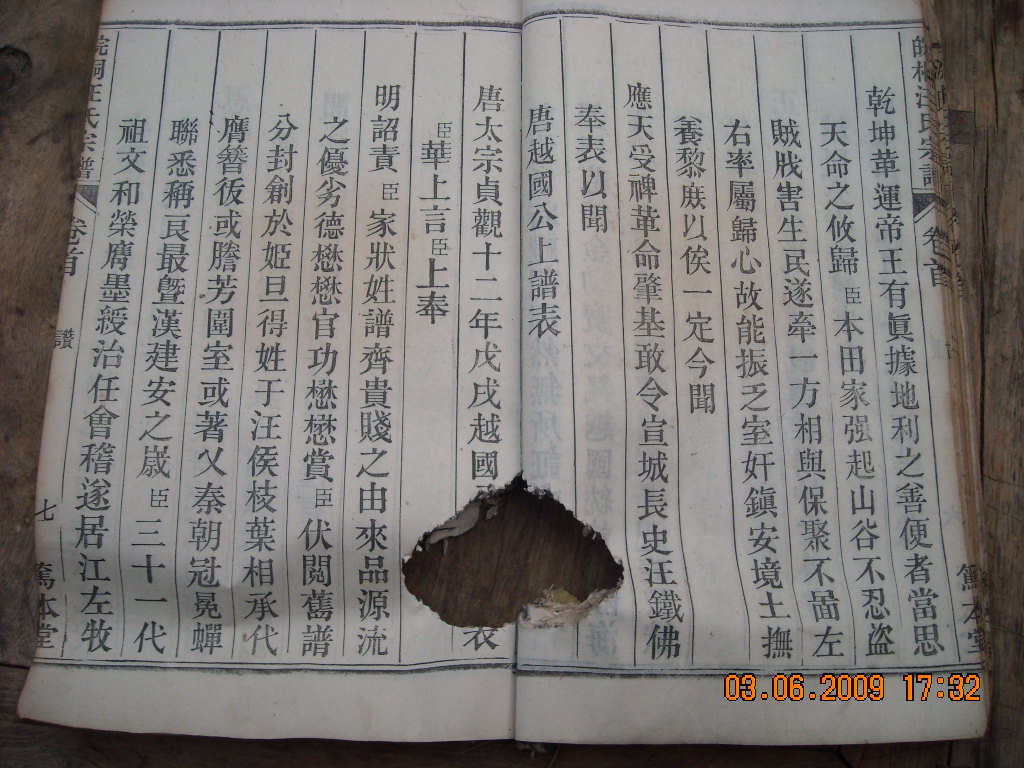 乾坤革運帝王有眞據地利之善便者當思
天命之攸歸臣本田家强起山谷不忍盗
賊戕害生民遂牽一方相與保聚不啚左
右率屬歸心故能振乏室奸鎮安境土撫
養黎庶以俟一定今聞
應天受禅革命肇基敢令宣城長史汪鐵佛
奉表以聞
唐越國公上譜表
唐太宗貞觀十二年戊戌越國 表
臣華上言臣上奉
明詔責臣家狀姓譜齊貴賤之由來品源流
之優劣德懋懋官功懋懋賞臣伏閲舊譜
分封創於姬旦得姓于汪侯枝葉相承代
膺簪彶或謄芳圍室或著乂秦朝冠冕蟬
聯悉稱㫐最曁漢建安之嵗臣三十一代
祖文和榮膺墨綬治任會稽遂居江左牧
皖桐汪氏宗譜 卷首 讃 七 篤本堂
皖桐汪氏宗譜 卷首 篤本堂
03.06.2009 17:32